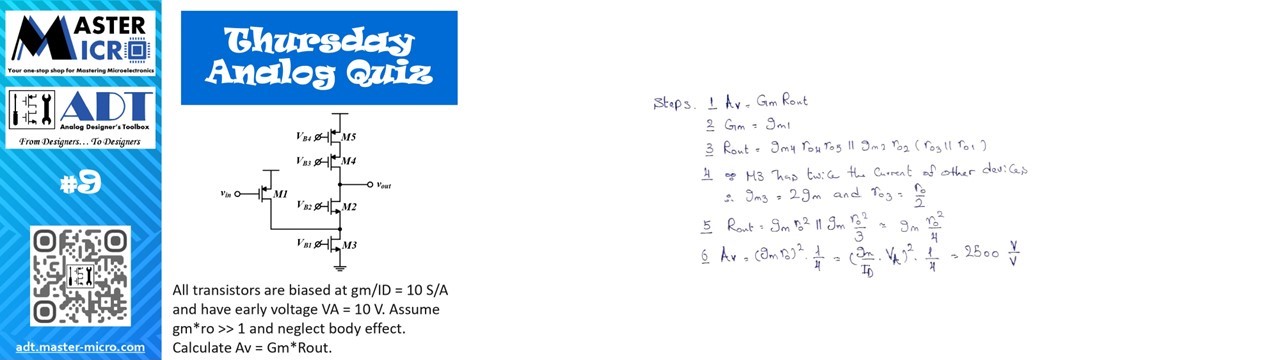 MASTER
MICRO
Your one-stop shop for Mastering Microelectronics
ADT
Analog Designer's Toolbox
From Designers… To Designers
#9
adt.master-micro.com
Thursday
Analog Quiz
VB4 M5
VB3 M4
vin M1
vout
VB2 M2
VB1 M3
All transistors are biased at gm/ID = 10 S/A
and have early voltage VA = 10 V. Assume
gm*ro >> 1 and neglect body effect.
Calculate Av = Gm*Rout.
Steps. 1 Av = Gm Rout
2 Gm = gm1
3 Rout = gm4 ro4 ro5 || gm2 ro2 (ro3 || ro1)
4 ∵ M3 has twice the current of other devices
∴ gm3 = 2gm and ro3 = ro/2
5 Rout = gm ro² || gm ro²/3 = gm ro²/4
6 Av = (gm ro)² · 1/4 = (gm/ID · VA)² · 1/4 = 2500 V/V